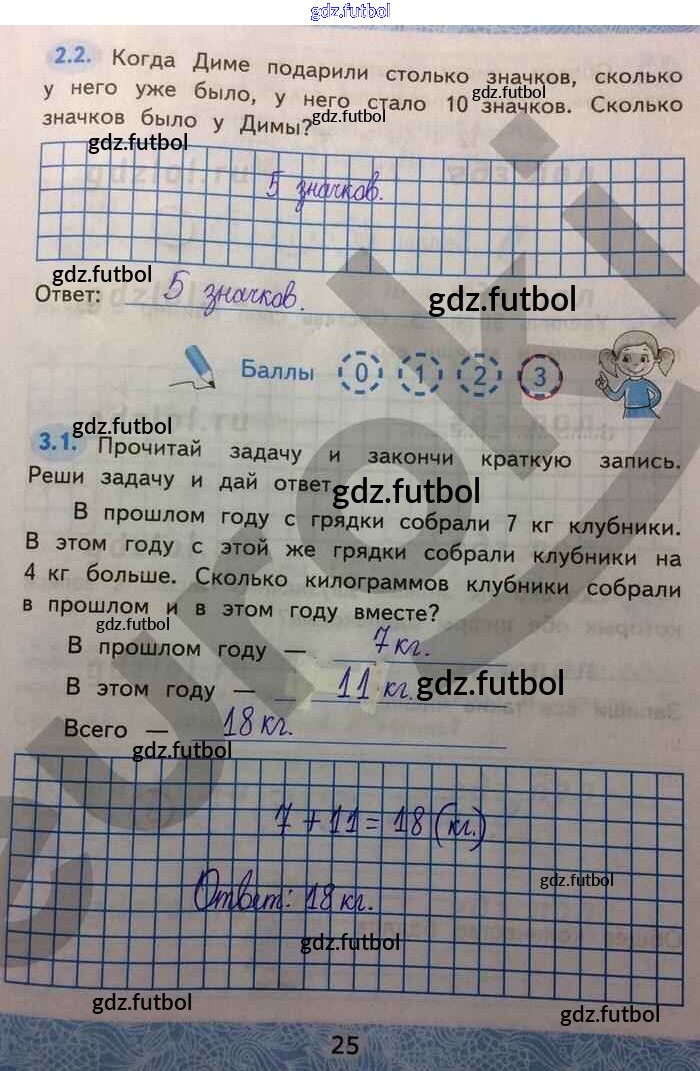 gdz.futbol
2.2. Когда Диме подарили столько значков, сколько
у него уже было, у него стало 10 значков. Сколько
gdz.futbol
значков было у Димы?
gdz.futbol
gdz.futbol
5 значков.
gdz.futbol
Ответ: 5 значков.
gdz.futbol
Баллы 0 1 2 3
gdz.futbol
3.1. Прочитай задачу и закончи краткую запись.
Реши задачу и дай ответ.
gdz.futbol
В прошлом году с грядки собрали 7 кг клубники.
В этом году с этой же грядки собрали клубники на
4 кг больше. Сколько килограммов клубники собрали
в прошлом и в этом году вместе?
gdz.futbol
В прошлом году — 7 кг.
В этом году — 11 кг.
gdz.futbol
Всего — 18 кг.
gdz.futbol
7 + 11 = 18 (кг.)
gdz.futbol
Ответ: 18 кг.
gdz.futbol
gdz.futbol
gdz.futbol
25
euroki